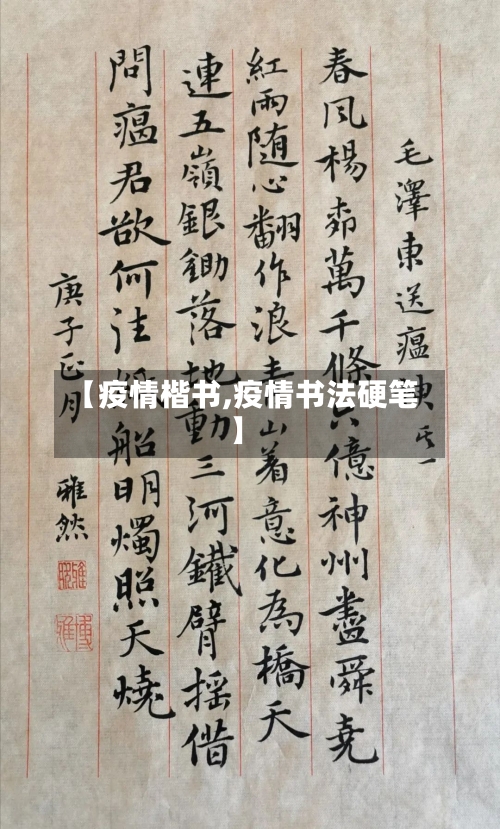 毛澤東送瘟其一
春风楊柳萬千條六億神州盡舜堯
紅雨随心翻作浪青山着意化為橋天
連五嶺銀鋤落地動三河鐵臂摇借
問瘟君欲何往紙船明燭照天燒
庚子正月 雅然
【疫情楷书,疫情书法硬笔
】